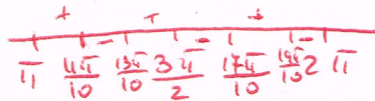 + - + - + -
π 11π/10 13π/10 3π/2 17π/10 19π/10 2π